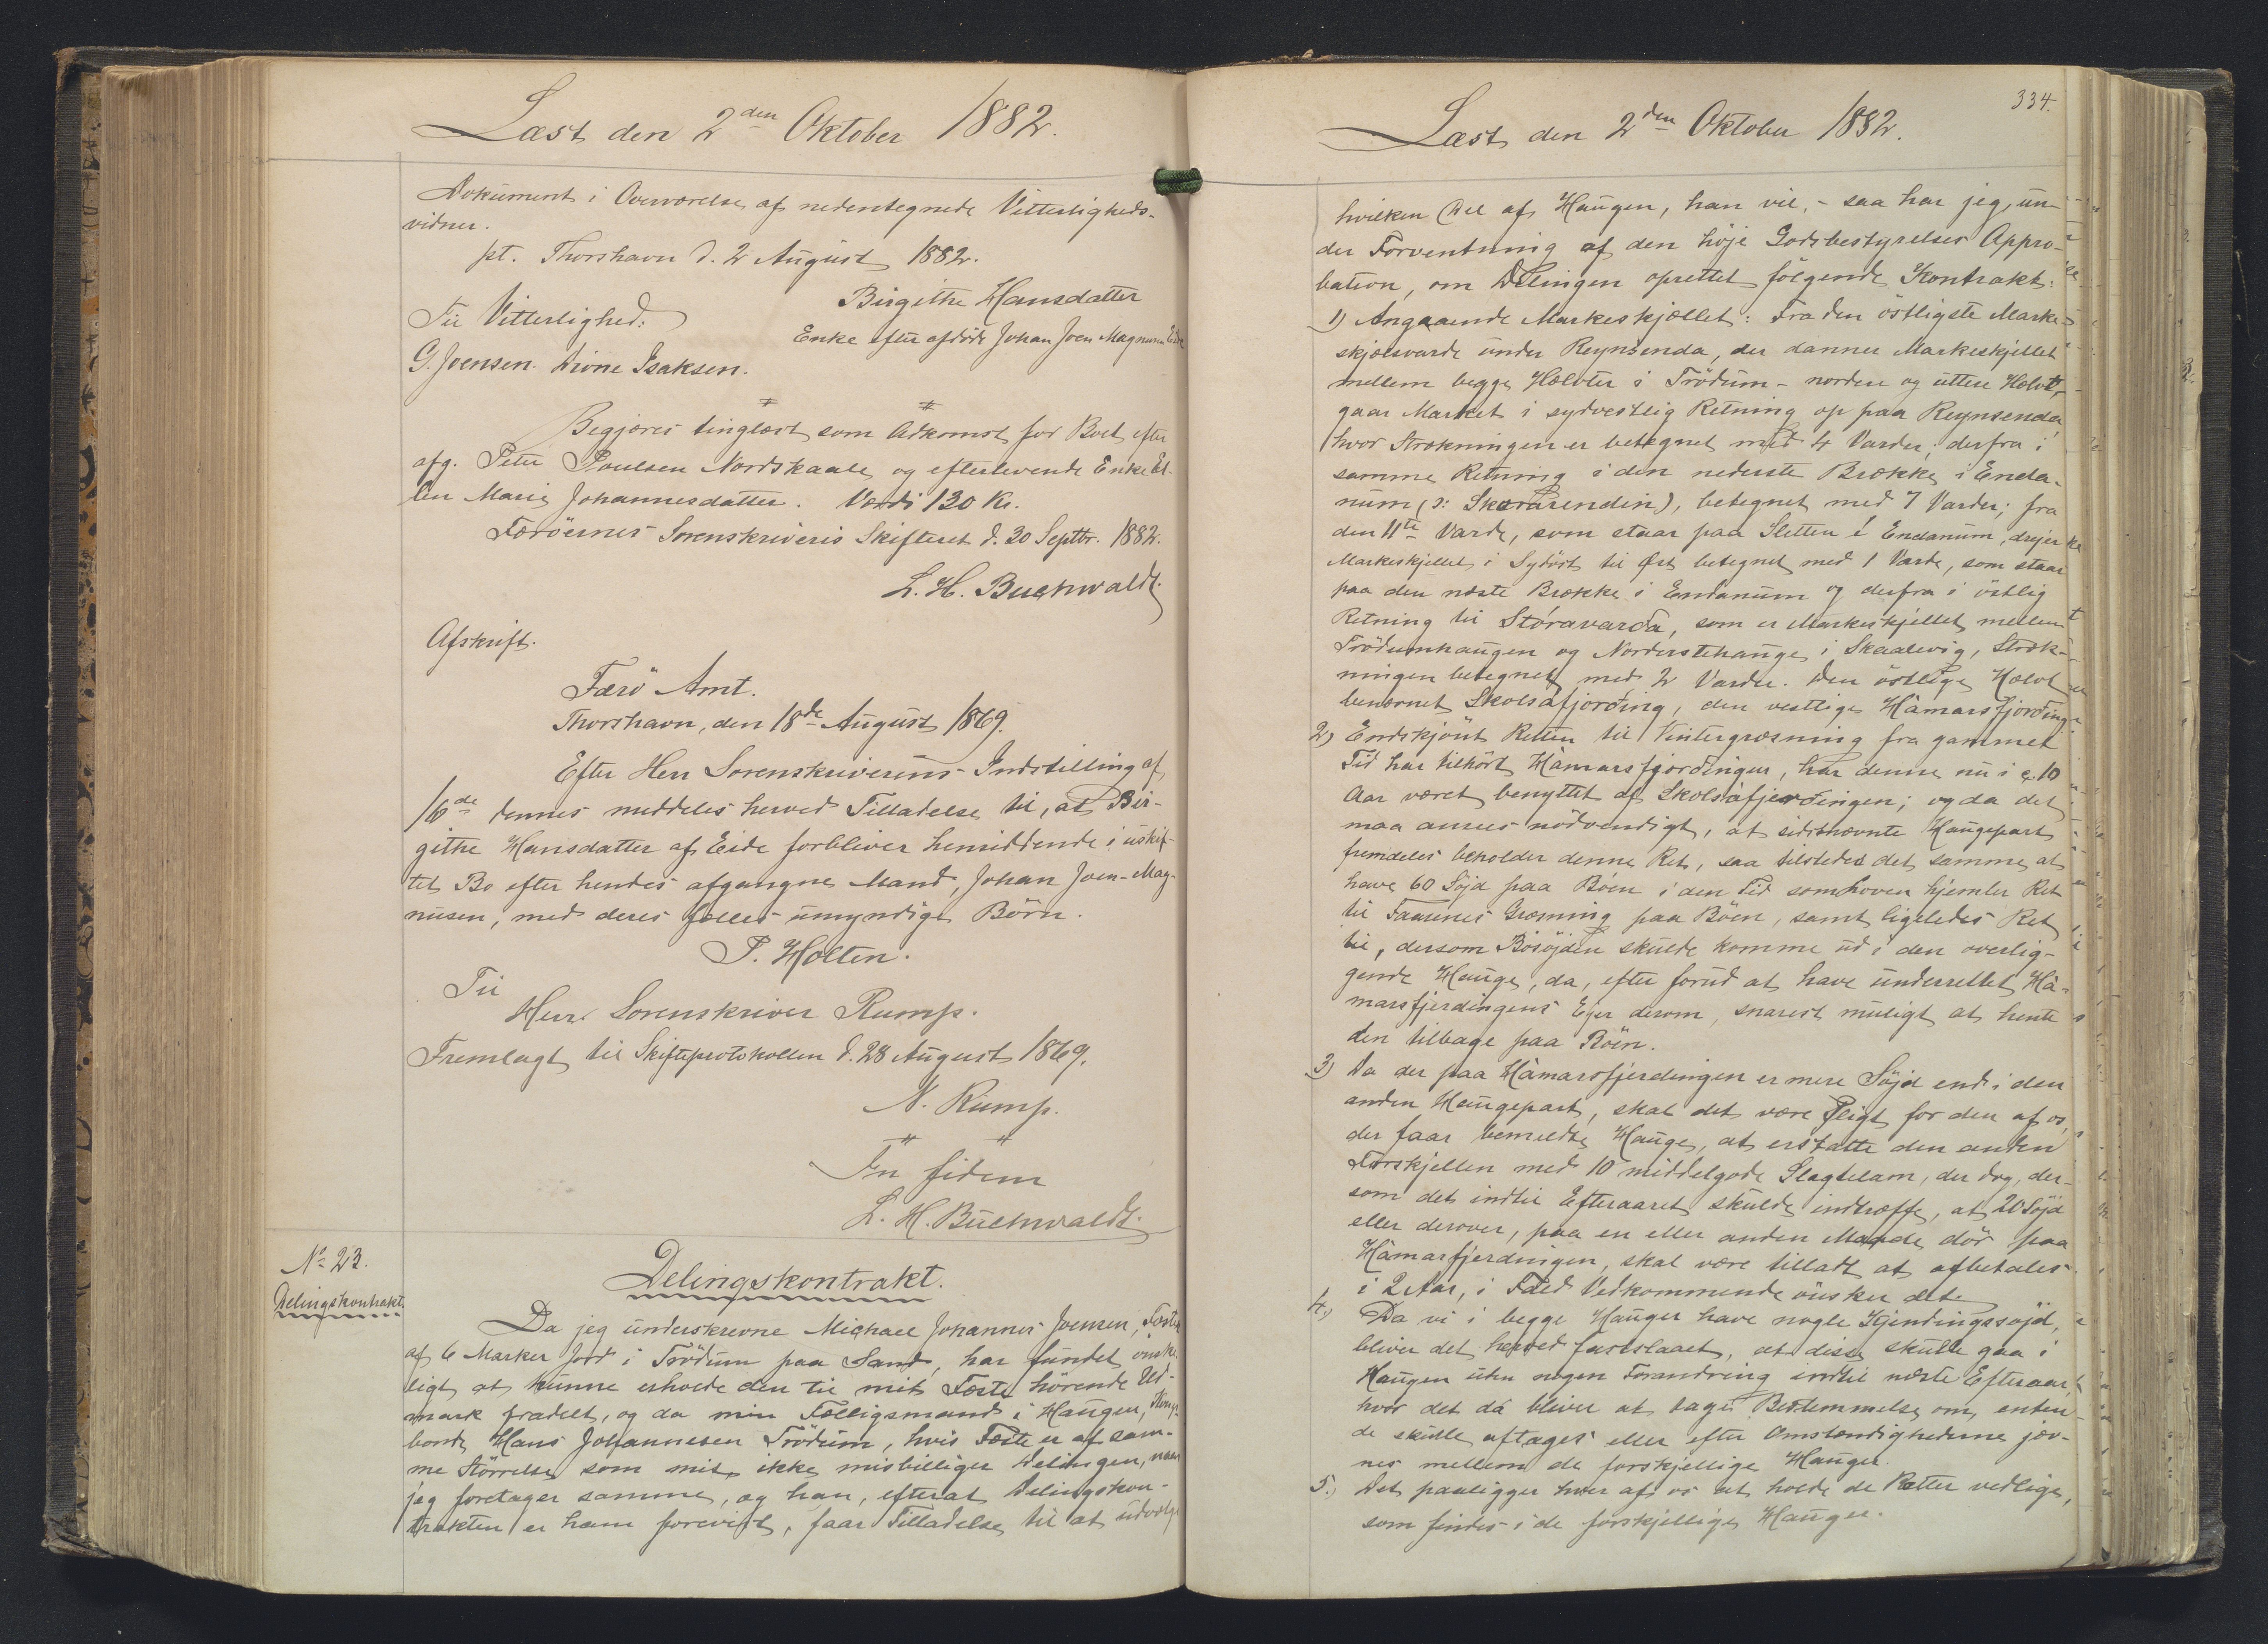 Læst den 2den Oktober 1882.
Dokument i Overværelse af nedentegnede Vitterligheds-
vidner.
pt. Thorshavn d. 2 August 1882.
Birgithe Hansdatter
Til Vitterlighed:
Enke efter afdöde Johan Joen Magnusen Eide
G. Joensen. Isaksen.
Begjæres tinglæst som Adkomst for Boet efter
afg. Peter Poulsen Nordskaale og efterlevende Enke El-
len Marie Johannesdatter. Værdi 130 Kr.
Færöernes Sorenskriveris Skifteret d. 30 Septbr. 1882.
L. H. Buchwaldt.
Afskrift.
Færö Amt.
Thorshavn, den 18de August 1869.
Efter Herr Sorenskriverens Indstilling af
16de dennes meddeles herved Tilladelse til, at Bir-
githe Hansdatter af Eide forbliver hensiddende i uskif-
tet Bo efter hendes afgangne Mand, Johan Joen-Mag-
nusen, med deres fælles umyndige Börn.
P. Holten.
Til
Herr Sorenskriver Rump.
Fremlagt til Skifteprotokollen d. 28 August 1869.
N. Rump.
In fidem
L. H. Buchwaldt.
No 23.
Delingskontrakt.
Delingskontrakt.
Da jeg underskrevne Michael Johannes Joensen, Fæster
af 6 Marker Jord i Trödum paa Sand, har fundet önske-
ligt at kunne erholde den til mit Fæste hörende Ud-
mark fradelt, og da min Fælligsmand i Haugen, Kongs-
bonde Hans Johannesen Trödum, hvis Fæste er af sam-
me Störrelse som mit, ikke misbilliger Delingen, naar
jeg foretager samme, og han, efterat Delingskon-
trakten er ham forevist, faar Tilladelse til at udvælge
334.
Læst den 2den Oktober 1882.
hvilken Del af Haugen, han vil, - saa har jeg, un-
der Forventning af den höje Godsbestyrelses Appro-
bation, om Delingen oprettet fölgende Kontrakt:
1) Angaaende Markeskjællet: Fra den östligste Marke-
skjelsvarde under Reynsenda, der danner Markeskjellet
mellem begge Halvter i Trödum - nordre og yttre Halvt,
gaar Market i sydvestlig Retning op paa Reynsenda
hvor Strækningen er betegnet med 4 Varder; derfra i
samme Retning i den nederste Brække i Enda-
num (ɔ: Skararendin), betegnet med 7 Varder; fra
den 11te Varde, som staar paa Sletten i Endanum, drejer
Markeskjellet i Sydöst til Øst betegnet med 1 Varde, som staar
paa den næste Brække i Endanum og derfra i östlig
Retning til Stóravarda, som er Markeskjellet mellem
Trödumhaugen og Norderstehauge i Skaalevig, Stræk-
ningen betegnet med 2 Varder. Den östlige Halvt
benævnet Skolsáfjording, den vestlige Hámarsfjording.
2) Endskjönt Retten til Vintergræsning fra gammel
Tid har tilhört Hámarsfjordingen, har denne nu i c. 10
Aar været benyttet af Skolsáfjerdingen; og da det
maa ansees nödvendigt, at sidstnævnte Haugepart
fremdeles beholder denne Ret, saa tilstedes det samme at
have 60 Söjd paa Böen i den Tid som Loven hjemler Ret
til Faarenes Græsning paa Böen, samt ligeledes Ret
til, dersom Bösöjden skulde komme ud i den overlig-
gende Hauge, da, efter forud at have underrettet Há-
marsfjerdingens Ejer derom, snarest muligt at hente
den tilbage paa Böen.
3) Da der paa Hámarsfjerdingen er mere Söjd end i den
anden Haugepart, skal det være Pligt for den af os,
der faar bemeldte Hauge, at erstatte den anden
Forskjellen med 10 middelgode Slagtelam, der dog, der-
som det indtil Efteraaret skulde indtræffe, at 20 Söjd
eller derover, paa en eller anden Maade dör paa
Hámarfjerdingen, skal være tilladt at afbetales
i 2 Aar, i Fald Vedkommende önsker det.
4.) Da vi i begge Hauger have nogle Kjendingssöjd,
bliver det herved fastslaaet, at disse skulle gaa i
Haugen uden nogen Forandring indtil næste Efteraar,
hvor det da bliver at tages Bestemmelse om, enten
de skulle aftages eller efter Omstændighederne jæv-
nes mellem de forskjellige Hauger.
5.) Det paaligger hver af os at holde de Rætter vedlige,
som findes i de forskjellige Hauger.